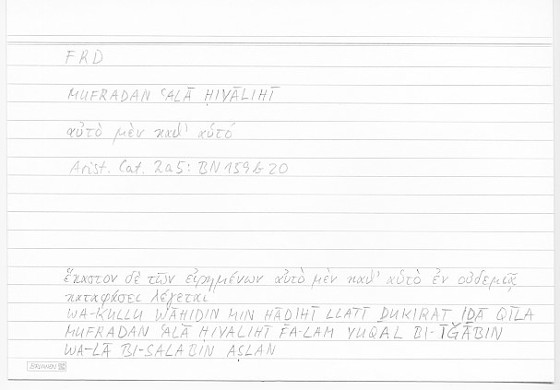 FRD
MUFRADAN ʿALĀ ḤIYĀLIHĪ
αὐτὸ μὲν καθ' αὑτό
Arist. Cat. 2a5: BN 159b20
ἕκαστον δὲ τῶν εἰρημένων αὐτὸ μὲν καθ' αὑτὸ ἐν οὐδεμιᾷ
καταφάσει λέγεται
WA-KULLU WĀḤIDIN MIN HĀḎIHĪ LLATĪ ḎUKIRAT IḎĀ QĪLA
MUFRADAN ʿALĀ ḤIYALIHĪ FA-LAM YUQAL BI-ĪǦĀBIN
WA-LĀ BI-SALABIN AṢLAN